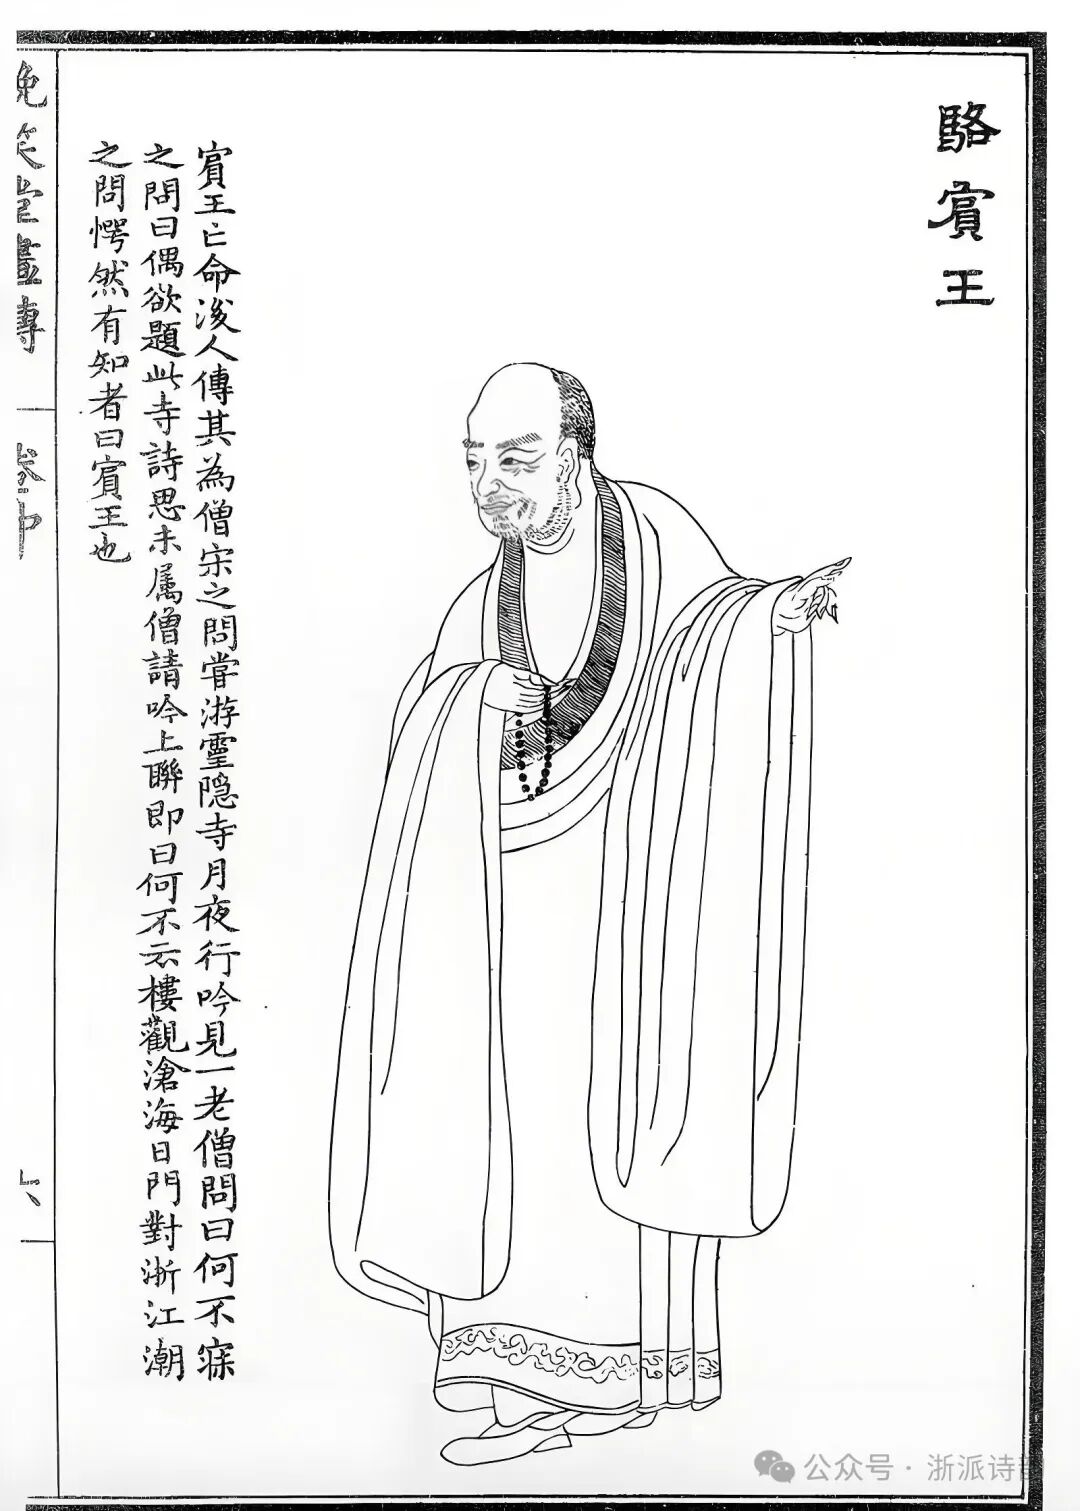 駱賓王
賓王亡命後人傳其為僧宋之問嘗游靈隐寺月夜行吟見一老僧問曰何不寐
之問曰偶欲題此寺詩思未属僧請吟上聯即曰何不云樓觀滄海日門對浙江潮
之問愕然有知者曰賓王也
晚笑堂畫傳
卷中
六
公众号·浙派诗